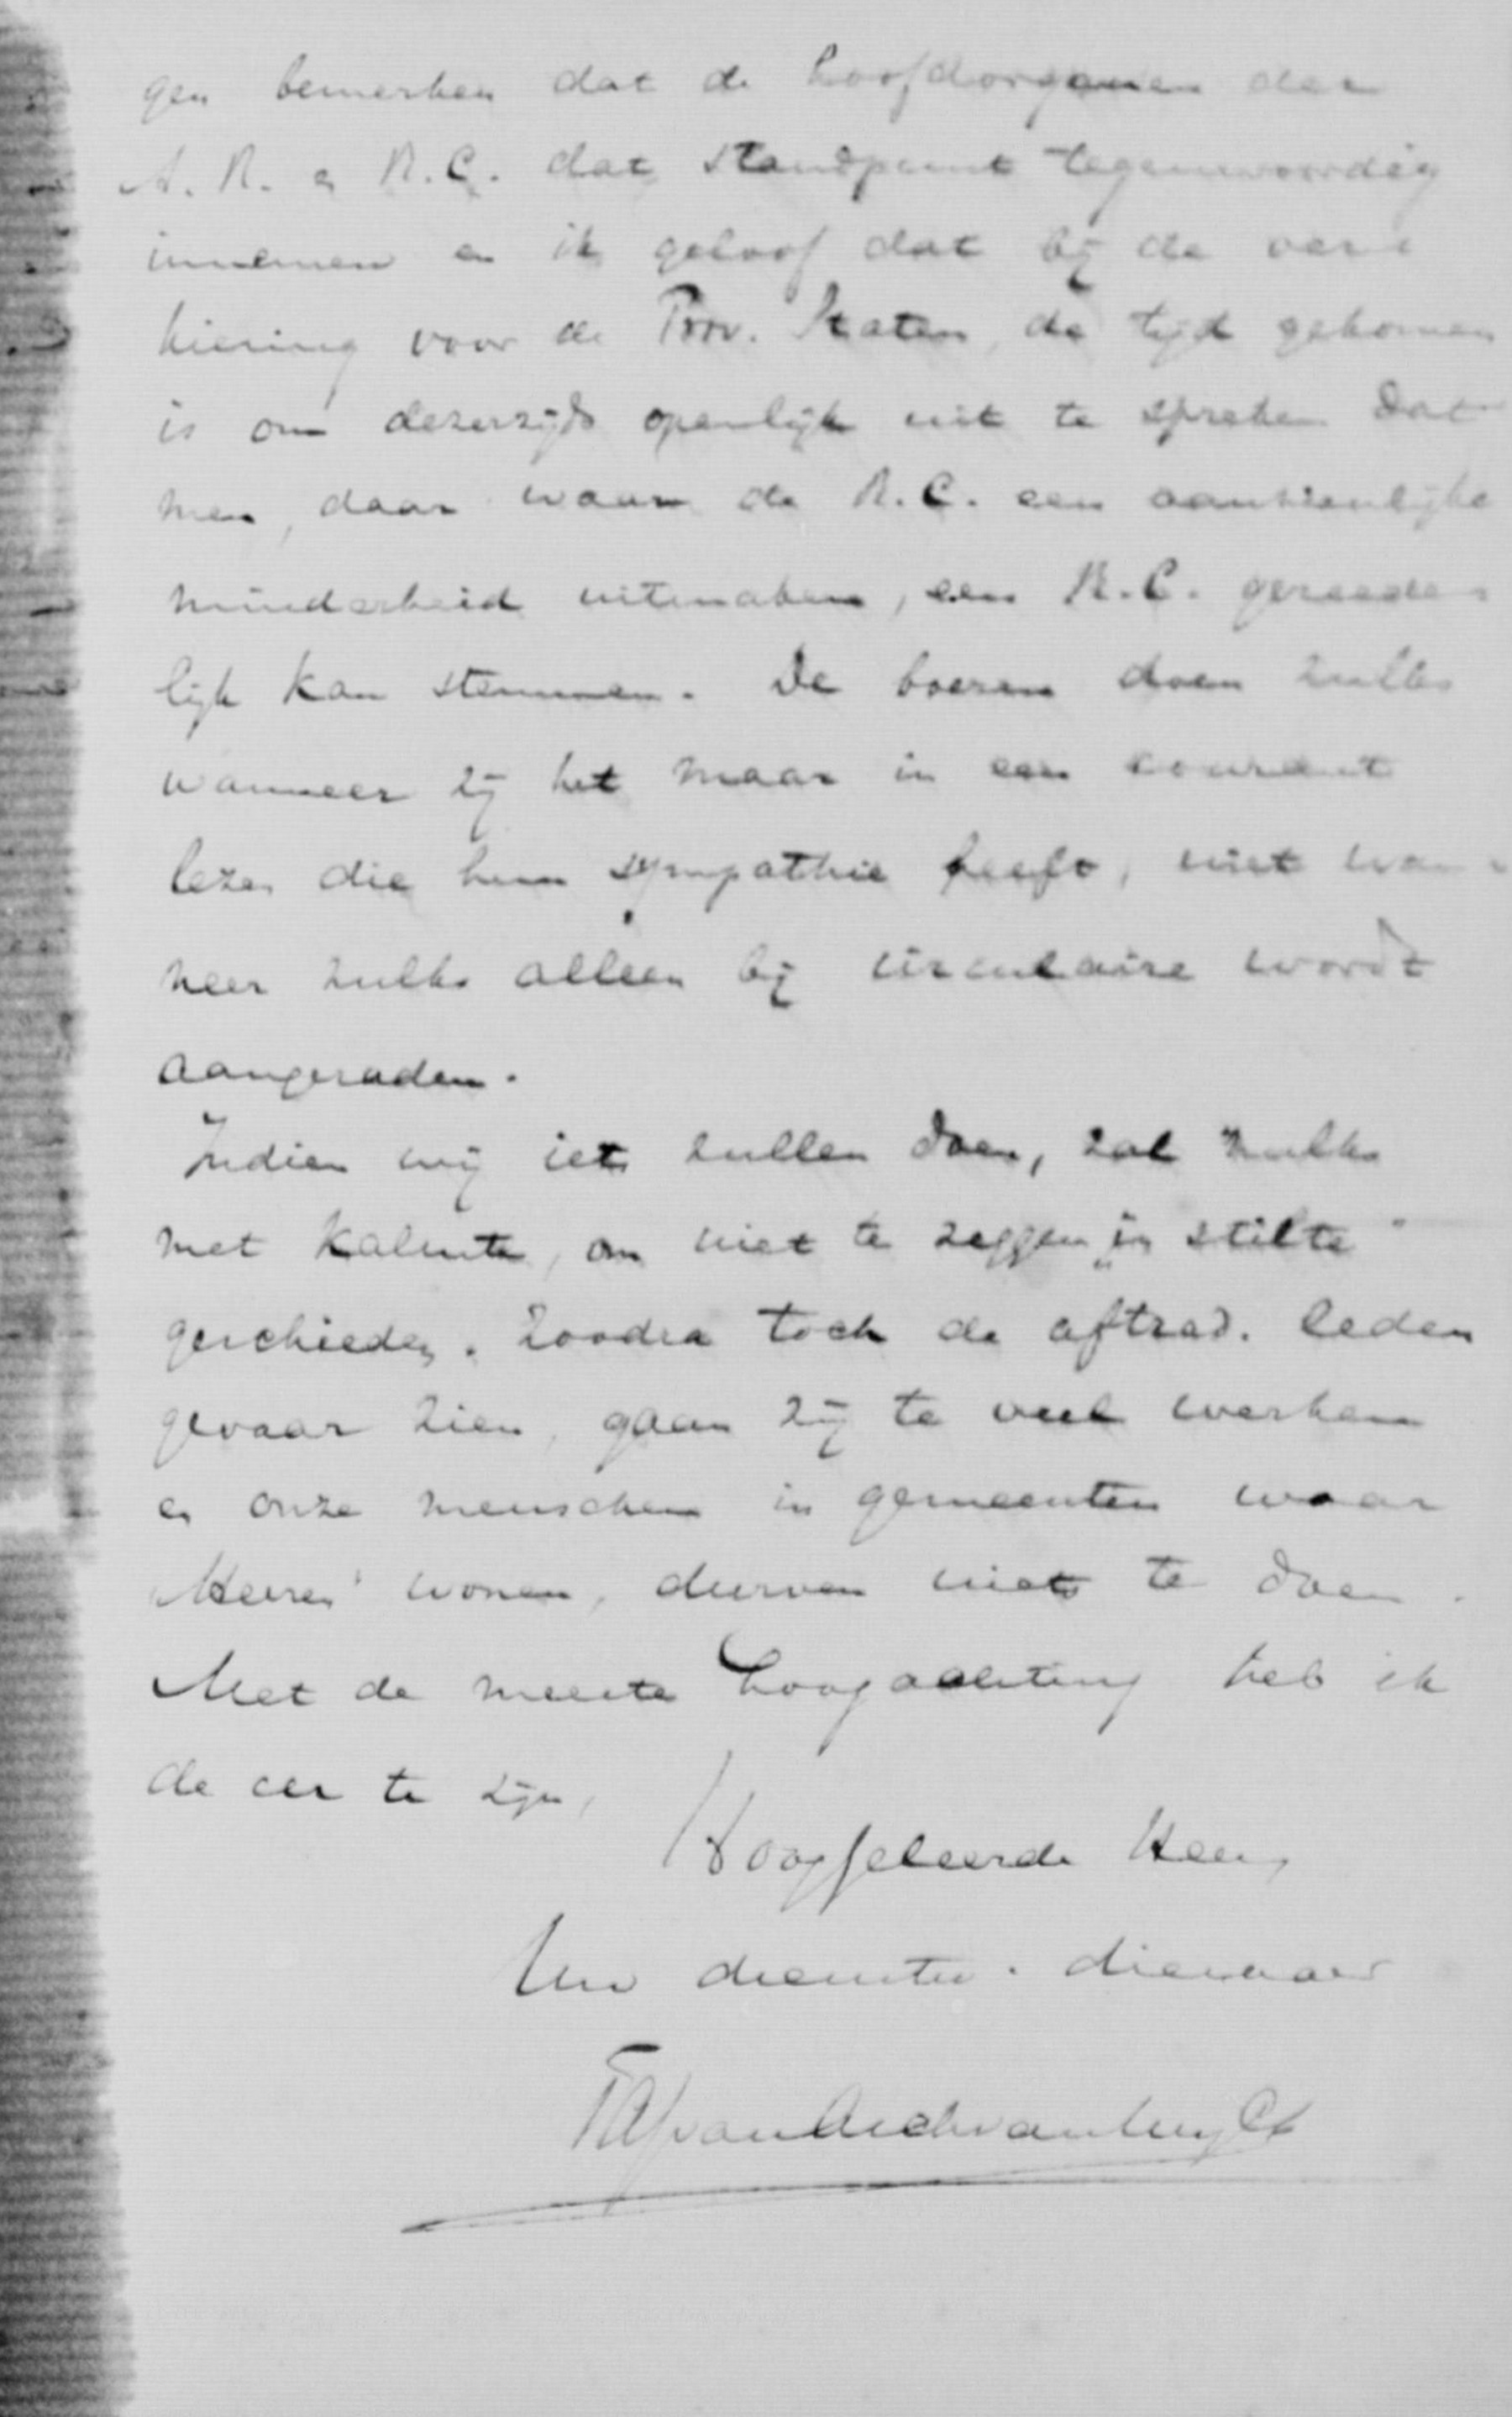 gen bemerken dat de hoofdorganen der
A. R. en R.C. dat standpunt tegenwoordig
innemen en ik geloof dat bij de ver=
kiezing voor de Prov. Staten, de tijd gekomen
is om dezerzijds openlijk uit te spreken dat
men, daar waar de R.C. een aanzienlijke
minderheid uitmaken, een R.C. gereede=
lijk kan stemmen. De boeren doen zulks
wanneer zij het maar in een courant
lezen die hun sympathie heeft, niet wan=
neer zulks alleen bij circulaire wordt
aangeraden.
Indien wij iets zullen doen, zal zulks
met kalmte, om niet te zeggen „in stilte"
geschieden. Zoodra toch de aftred. leden
gevaar zien, gaan zij te veel werken
en onze menschen in gemeenten waar
"Heeren" wonen, durven niets te doen.
Met de meeste hoogachting heb ik
de eer te zijn,
Hooggeleerde Heer,
Uw dienstw. dienaar